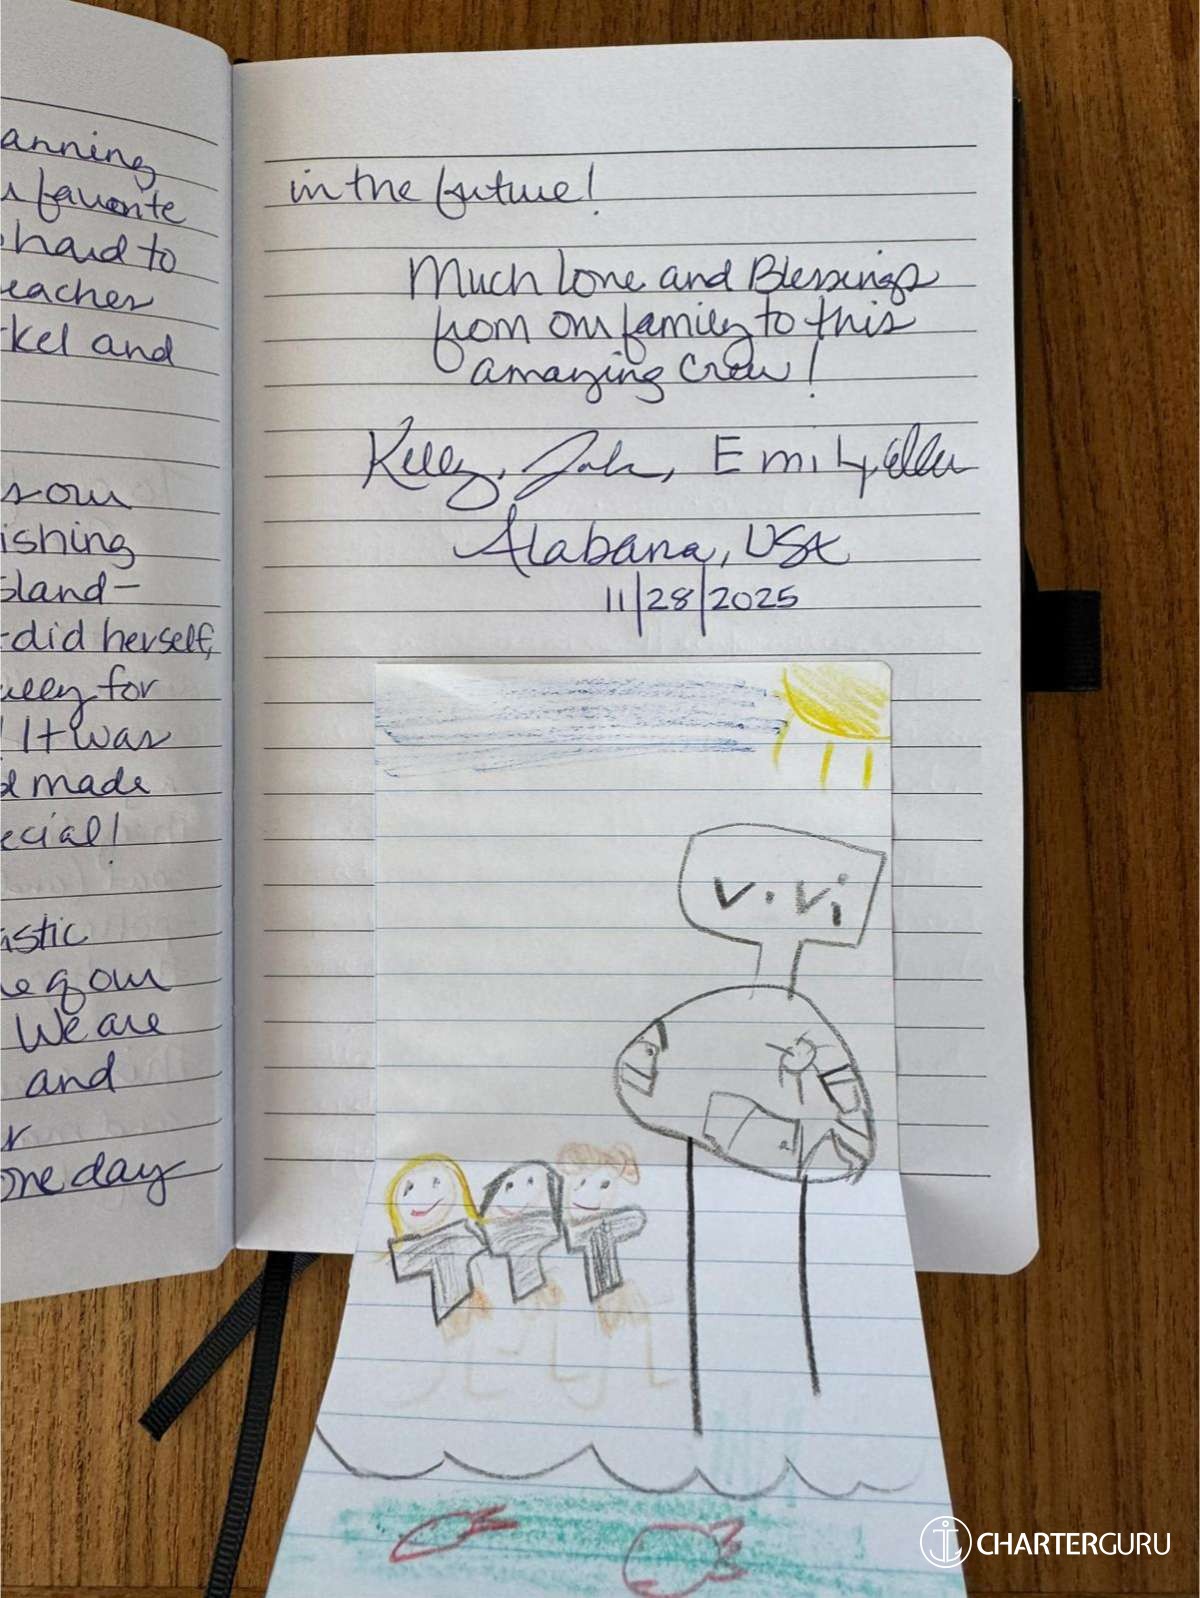 anning
favorite
hard to
eaches
kel and
s our
ishing
sland-
did herself,
for
! It was
d made
ecial!
astic
e of our
We are
and
r
one day
in the future!
Much love and Blessings
from our family to this
amazing crew!
Kelly, Jake, Emily, Ellie
Alabama, USA
11/28/2025
ViVi
CHARTERGURU